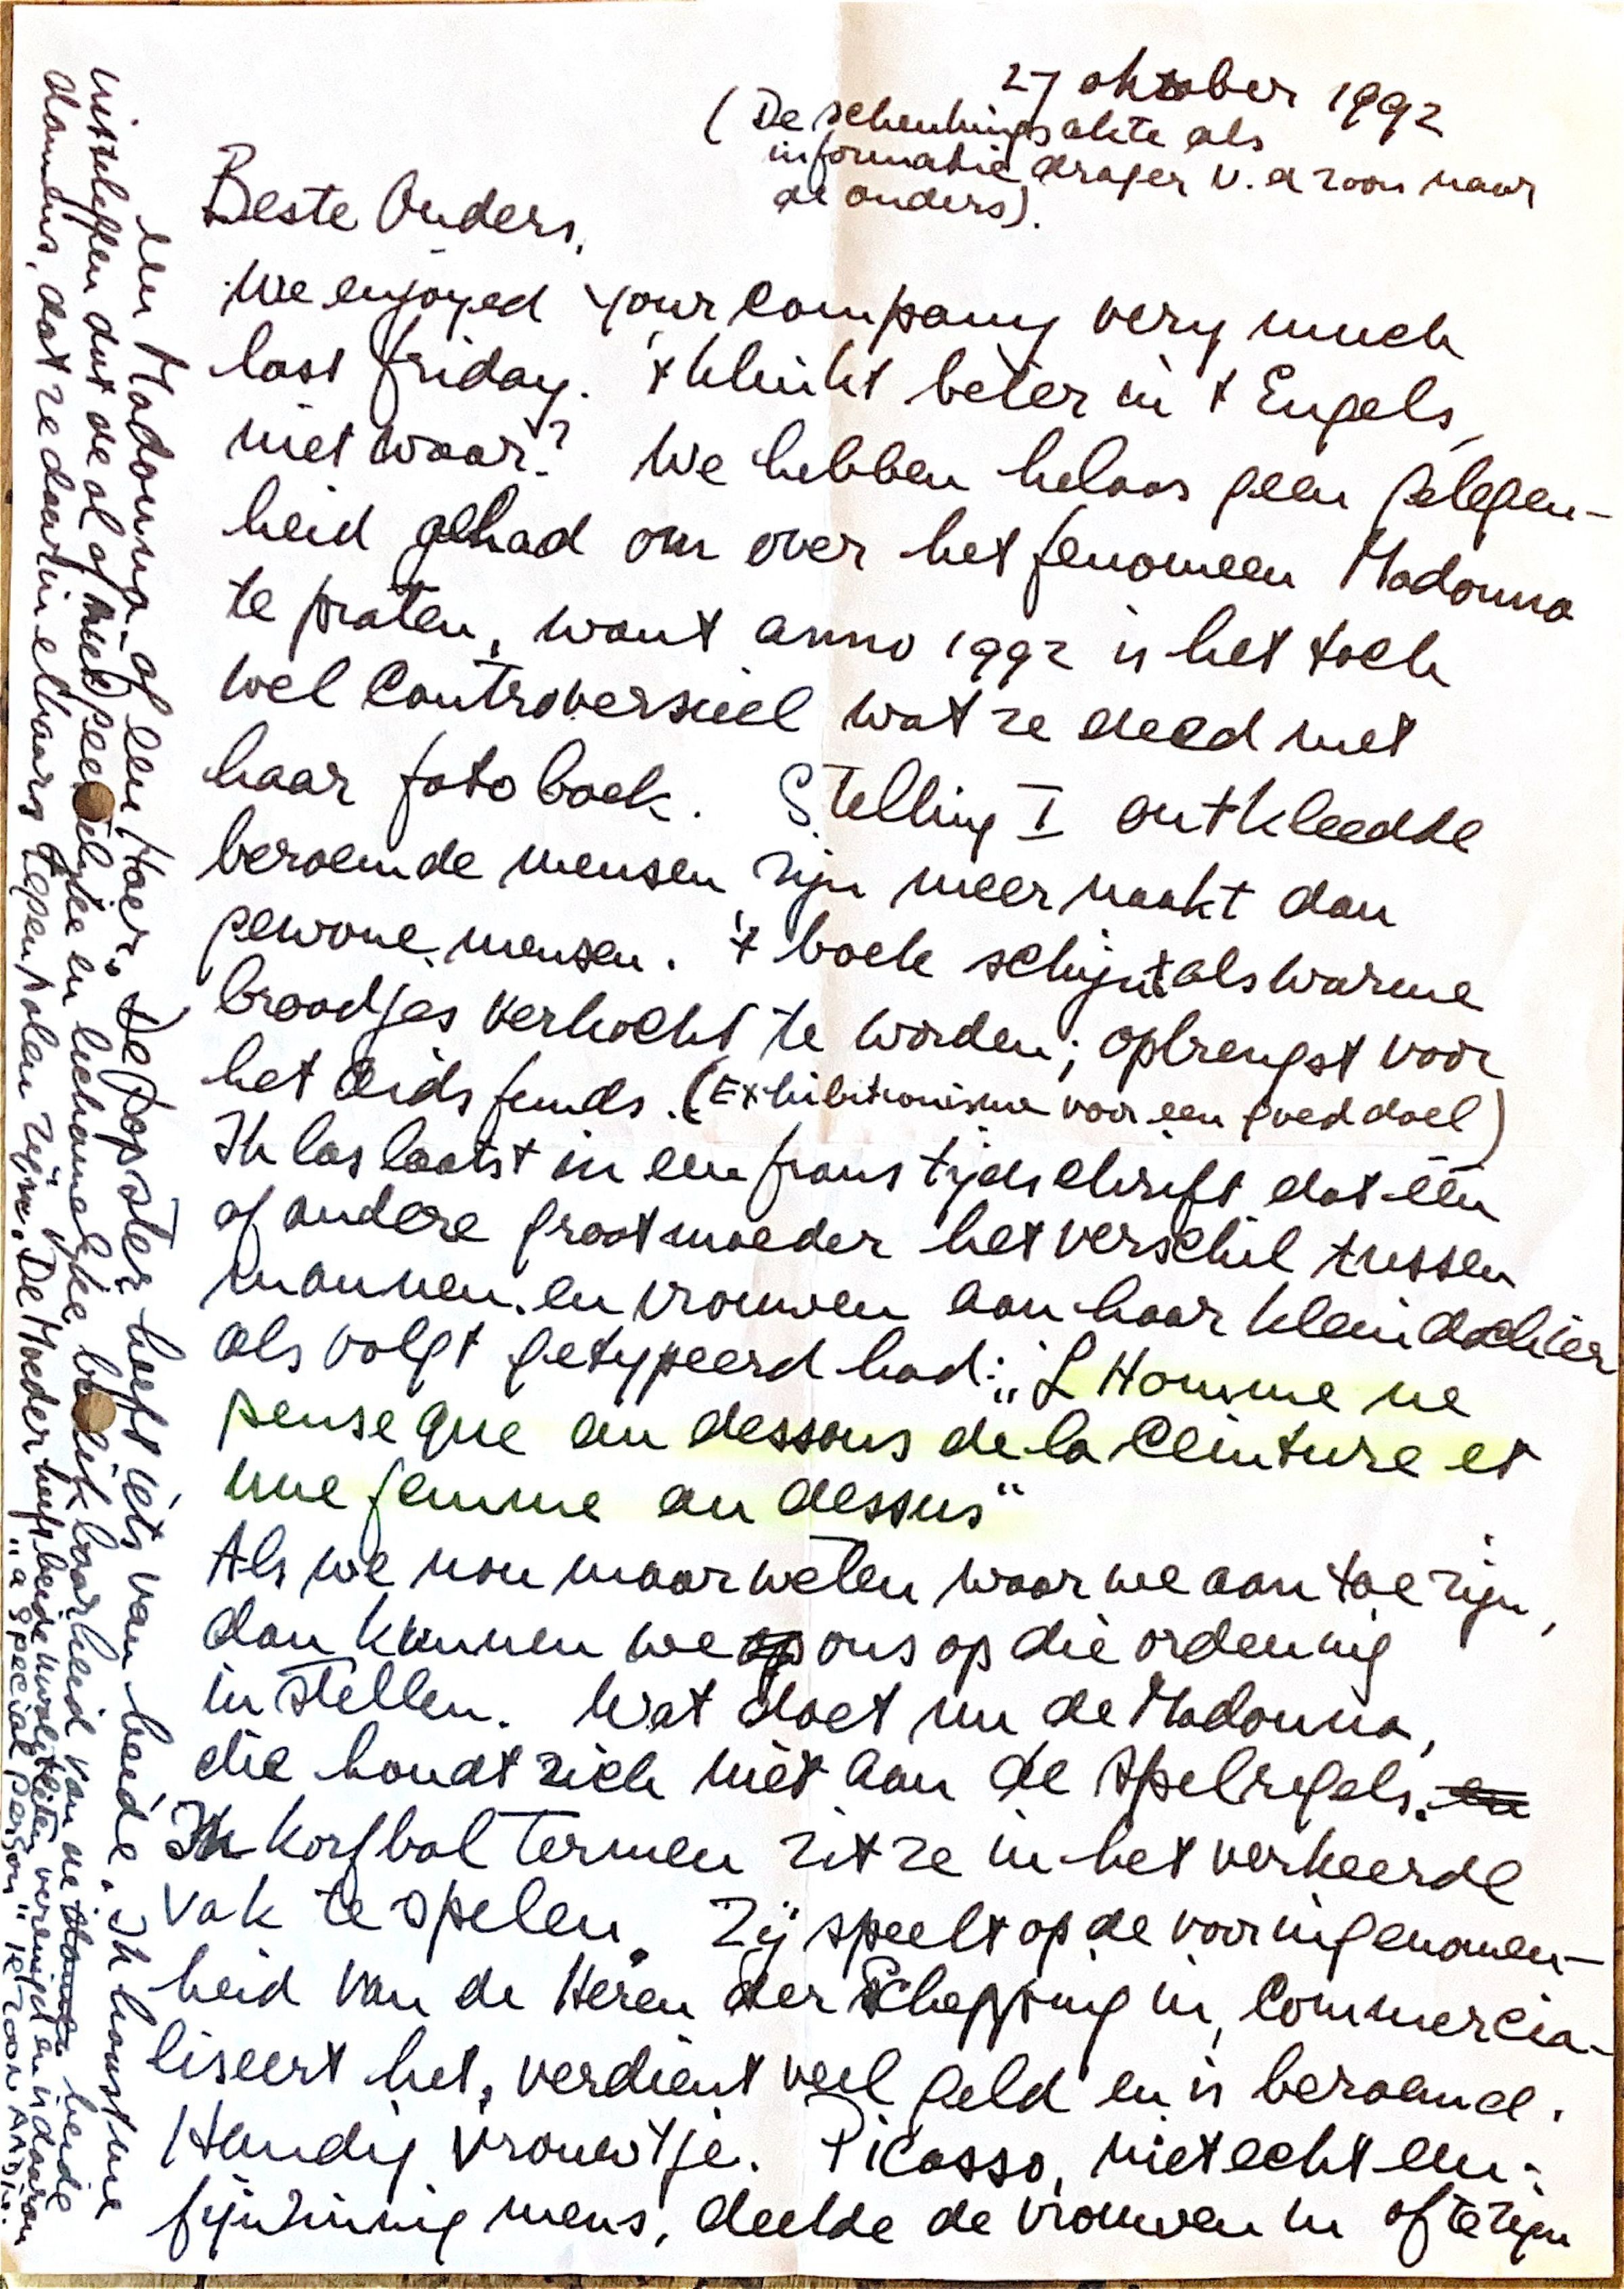 27 oktober 1992
(De schenkingsakte als
informatie drager v. d zoon naar
de ouders).
Beste Ouders,
We enjoyed your company very much
last friday. 't klinkt beter in 't Engels,
niet waar? We hebben helaas geen gelegen-
heid gehad om over het fenomeen Madonna
te praten, want anno 1992 is het toch
wel controversieel wat ze deed met
haar fotoboek. Stelling I ontkleedde
beroemde mensen zijn meer naakt dan
gewone mensen. 't boek schijnt als warme
broodjes verkocht te worden; opbrengst voor
het aids funds. (Exhibitionisme voor een goed doel)
Ik las laatst in een frans tijdschrift dat één
of andere grootmoeder het verschil tussen
mannen en vrouwen aan haar kleindochter
als volgt getypeerd had: „L'Homme ne
pense que au dessous de la Ceinture et
une femme au dessus"
Als we nou maar weten waar we aan toe zijn,
dan kunnen we ons op die ordening
instellen. Wat doet nu de Madonna,
die houdt zich niet aan de spelregels. en
In korfbal termen zit ze in het verkeerde
vak te spelen. Zij speelt op de vooringenomen-
heid van de Heren der Schepping in, commercia-
liseert het, verdient veel geld en is beroemd.
Handig vrouwtje. Picasso, niet echt een
fijnzinnig mens, deelde de vrouwen in of te zijn
een Madonna of een Hoer. De popster heeft iets van beide. Ik haast me
uit te leggen dat de al of niet geestelijke en lichamelijke beschikbaarheid van de beide
dames, dat ze daarin elkaars tegenpolen zijn. De Moeder heeft beide kwaliteiten verenigd en is daarom
„a special person" je zoon André.